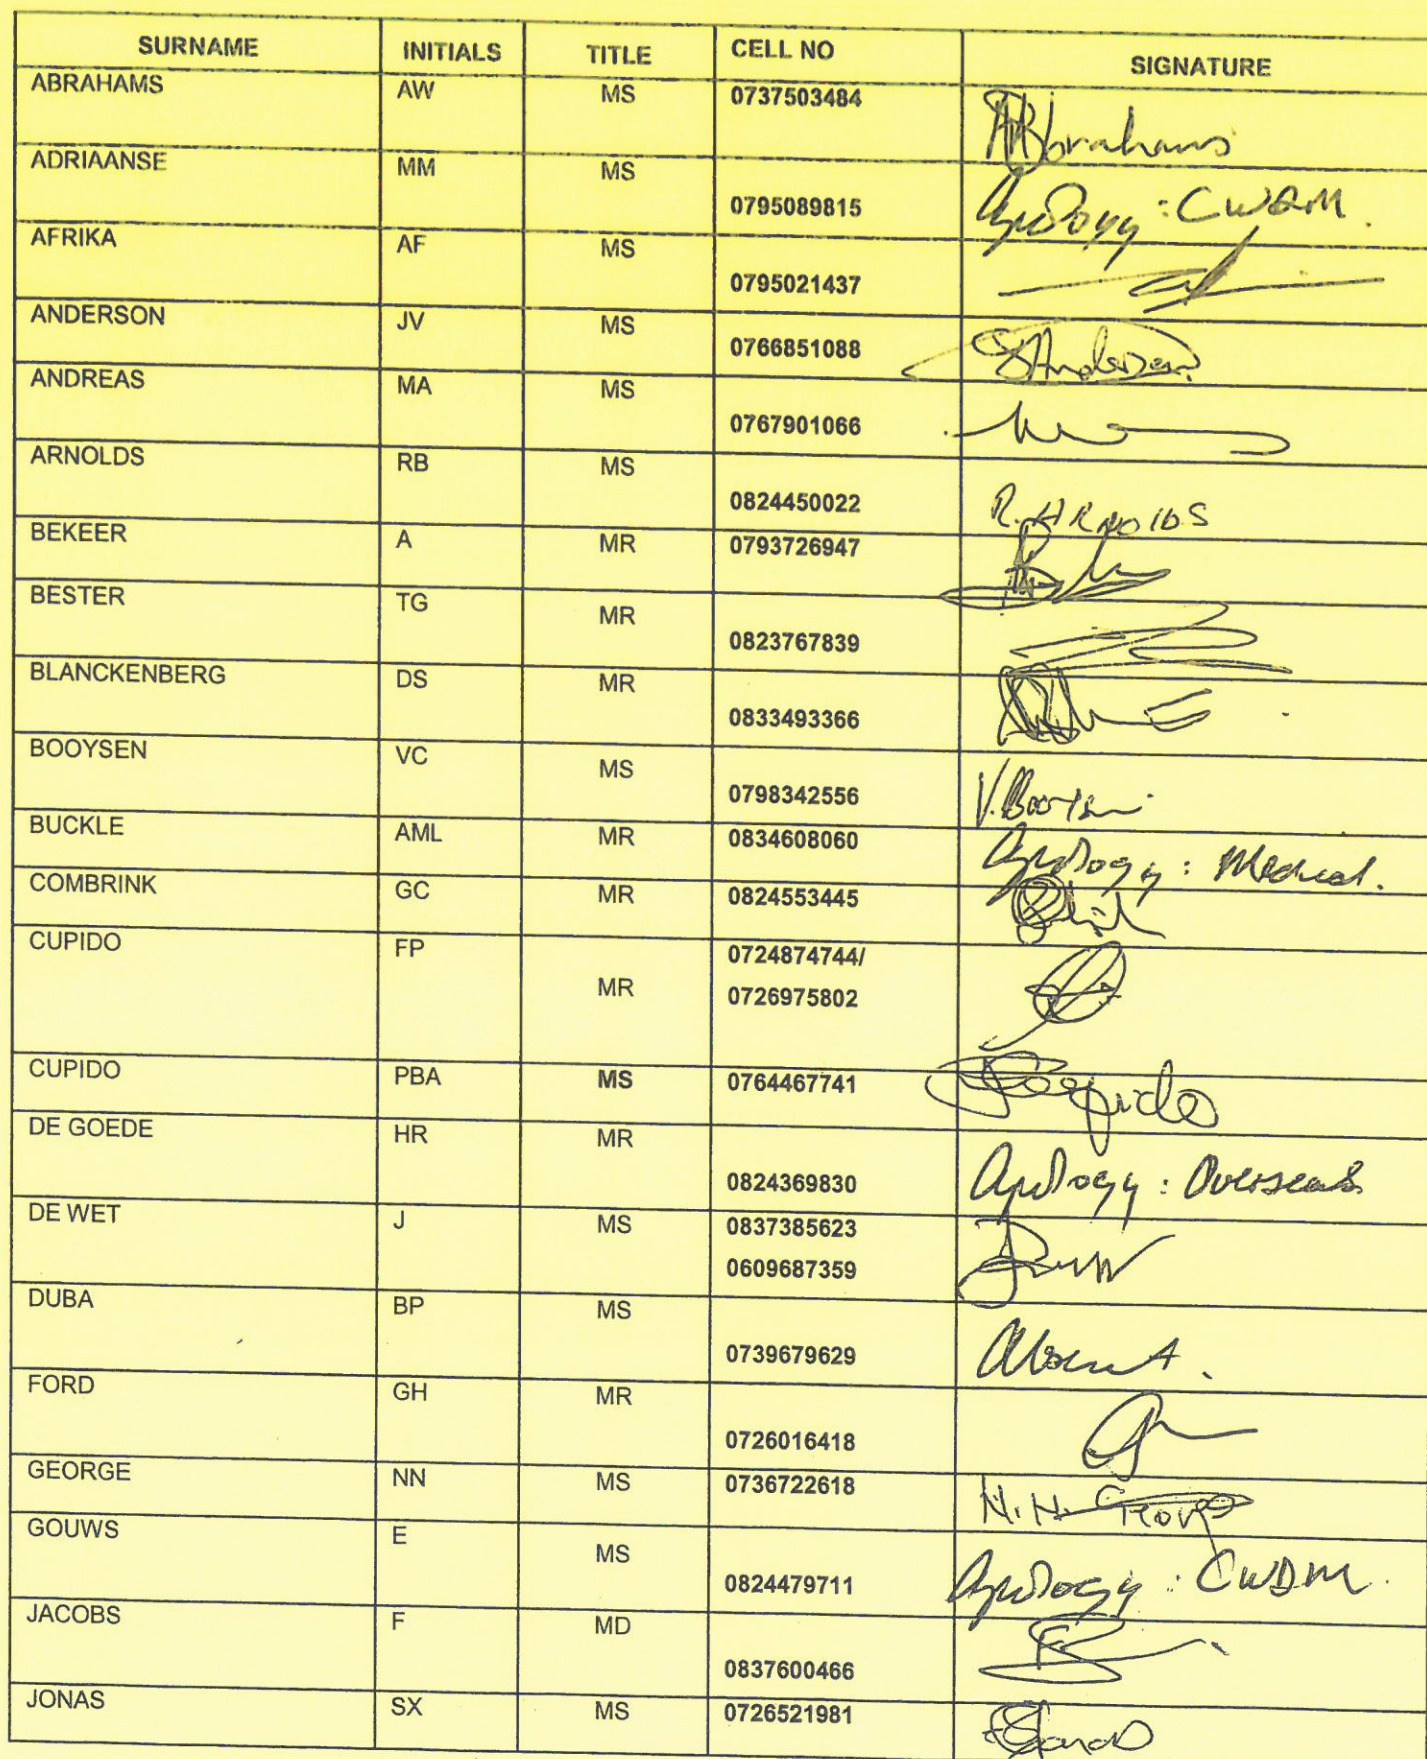 SURNAME INITIALS TITLE CELL NO SIGNATURE
ABRAHAMS AW MS 0737503484 Abrahams
ADRIAANSE MM MS 0795089815 Apology : CWDM.
AFRIKA AF MS 0795021437
ANDERSON JV MS 0766851088 Anderson
ANDREAS MA MS 0767901066
ARNOLDS RB MS 0824450022 R. ARNOlDS
BEKEER A MR 0793726947
BESTER TG MR 0823767839
BLANCKENBERG DS MR 0833493366
BOOYSEN VC MS 0798342556 V. Booysen
BUCKLE AML MR 0834608060 Apology : Medical.
COMBRINK GC MR 0824553445
CUPIDO FP MR 0724874744/
0726975802
CUPIDO PBA MS 0764467741 Cupido
DE GOEDE HR MR 0824369830 Apology : Overseas
DE WET J MS 0837385623
0609687359
DUBA BP MS 0739679629 Absent.
FORD GH MR 0726016418
GEORGE NN MS 0736722618 N.N. George
GOUWS E MS 0824479711 Apology : CWDM.
JACOBS F MD 0837600466
JONAS SX MS 0726521981 Jonas